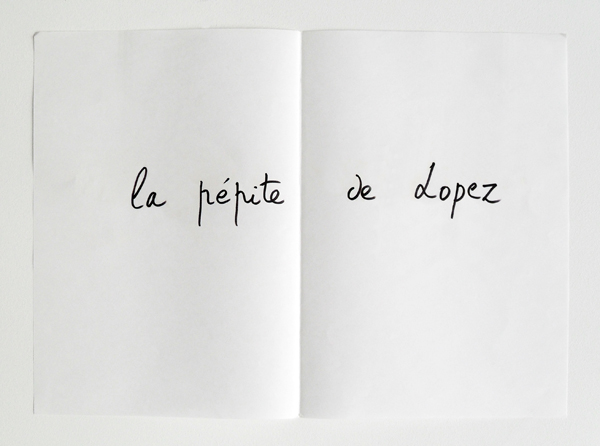 la pépite de Lopez